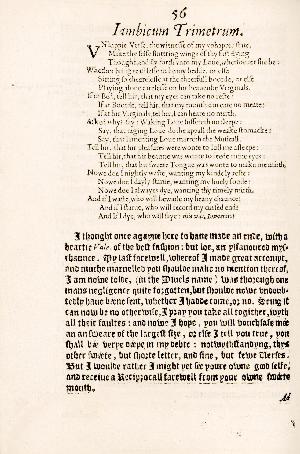 56
Iambicum Trimetrum.
Vnhappie Verse, the witnesse of my vnhappie state,
Make thy selfe fluttring wings of thy fast flying
Thought, and fly forth vnto my Loue, whersoeuer she be:
Whether lying reastlesse in heauy bedde, or else
Sitting so cheerelesse at the cheerfull boorde, or else
Playing alone carelesse on hir heauenlie Virginals.
If in Bed, tell hir, that my eyes can take no reste:
If at Boorde, tell hir, that my mouth can eate no meate:
If at hir Virginals, tel hir, I can heare no mirth.
Asked why? say: Waking Loue suffereth no sleepe:
Say, that raging Loue dothe appall the weake stomacke:
Say, that lamenting Loue marreth the Musicall.
Tell hir, that hir pleasures were wonte to lull me asleepe:
Tell hir, that hir beautie was wonte to feede mine eyes:
Tell hir, that hir sweete Tongue was wonte to make me mirth.
Nowe doe I nightly waste, wanting my kindely reste:
Nowe doe I dayly starue, wanting my liuely foode:
Nowe doe I alwayes dye, wanting thy timely mirth.
And if I waste, who will bewaile my heauy chance?
And if I starue, who will record my cursed end?
And if I dye, who will saye: this was, Immerito?
I thought once agayne here to haue made an ende, with a
heartie Vale, of the best fashion: but loe, an ylfauoured mys-
chaunce. My last farewell, whereof I made great accompt,
and muche marvelled you shoulde make no mention thereof,
I am nowe tolde, (in the Diuels name) was thorough one
mans negligence quite forgotten, but shoulde nowe vndoub-
tedly haue beene sent, whether I hadde come, or no. Seing it
can now be no otherwise, I pray you take all togither, wyth
all their faultes: and nowe I hope, you will vouchsafe mee
an answeare of the largest size, or else I tell you true, you
shall bee verye deepe in my debte: notwythstandyng, thys
other sweete, but shorte letter, and fine, but fewe Verses.
But I woulde rather I might yet see youre owne good selfe,
and receiue a Reciprocall farewell from your owne sweete
mouth.